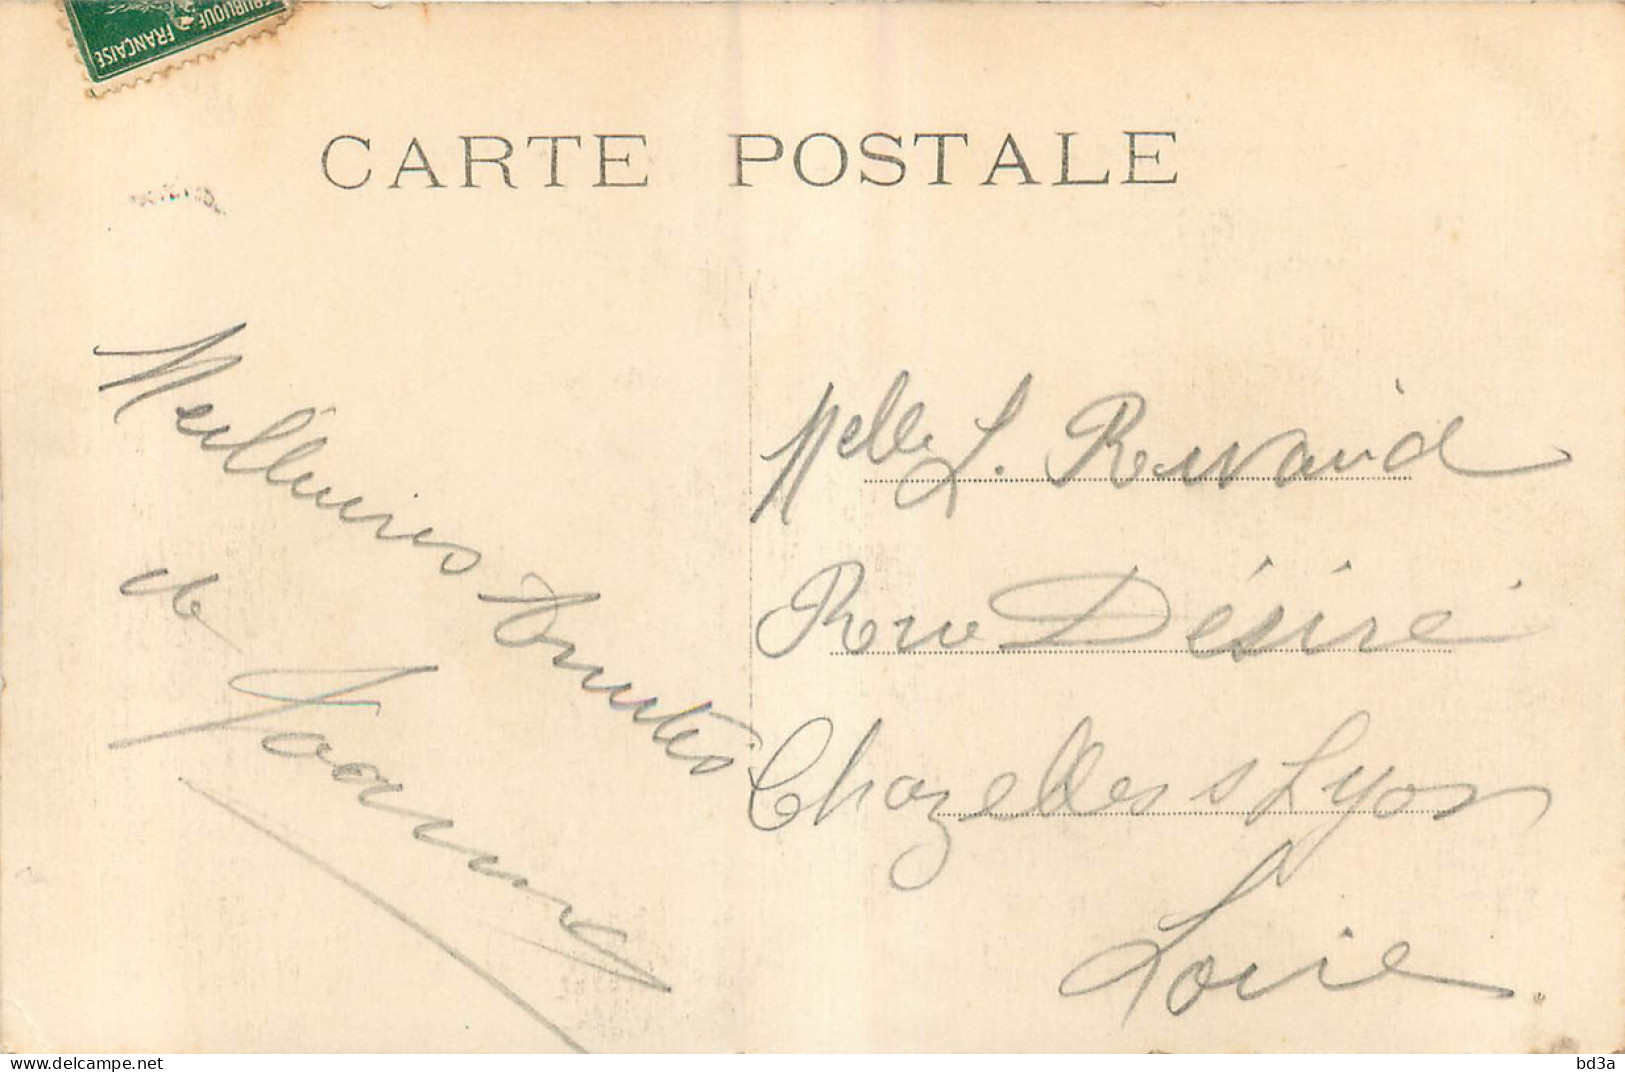 RÉPUBLIQUE FRANÇAISE
CARTE POSTALE
Meilleures Amitiés
de Joanna
Melle L. Rivaud
Rue Désiré
Chazelles s Lyon
Loire
bd3a